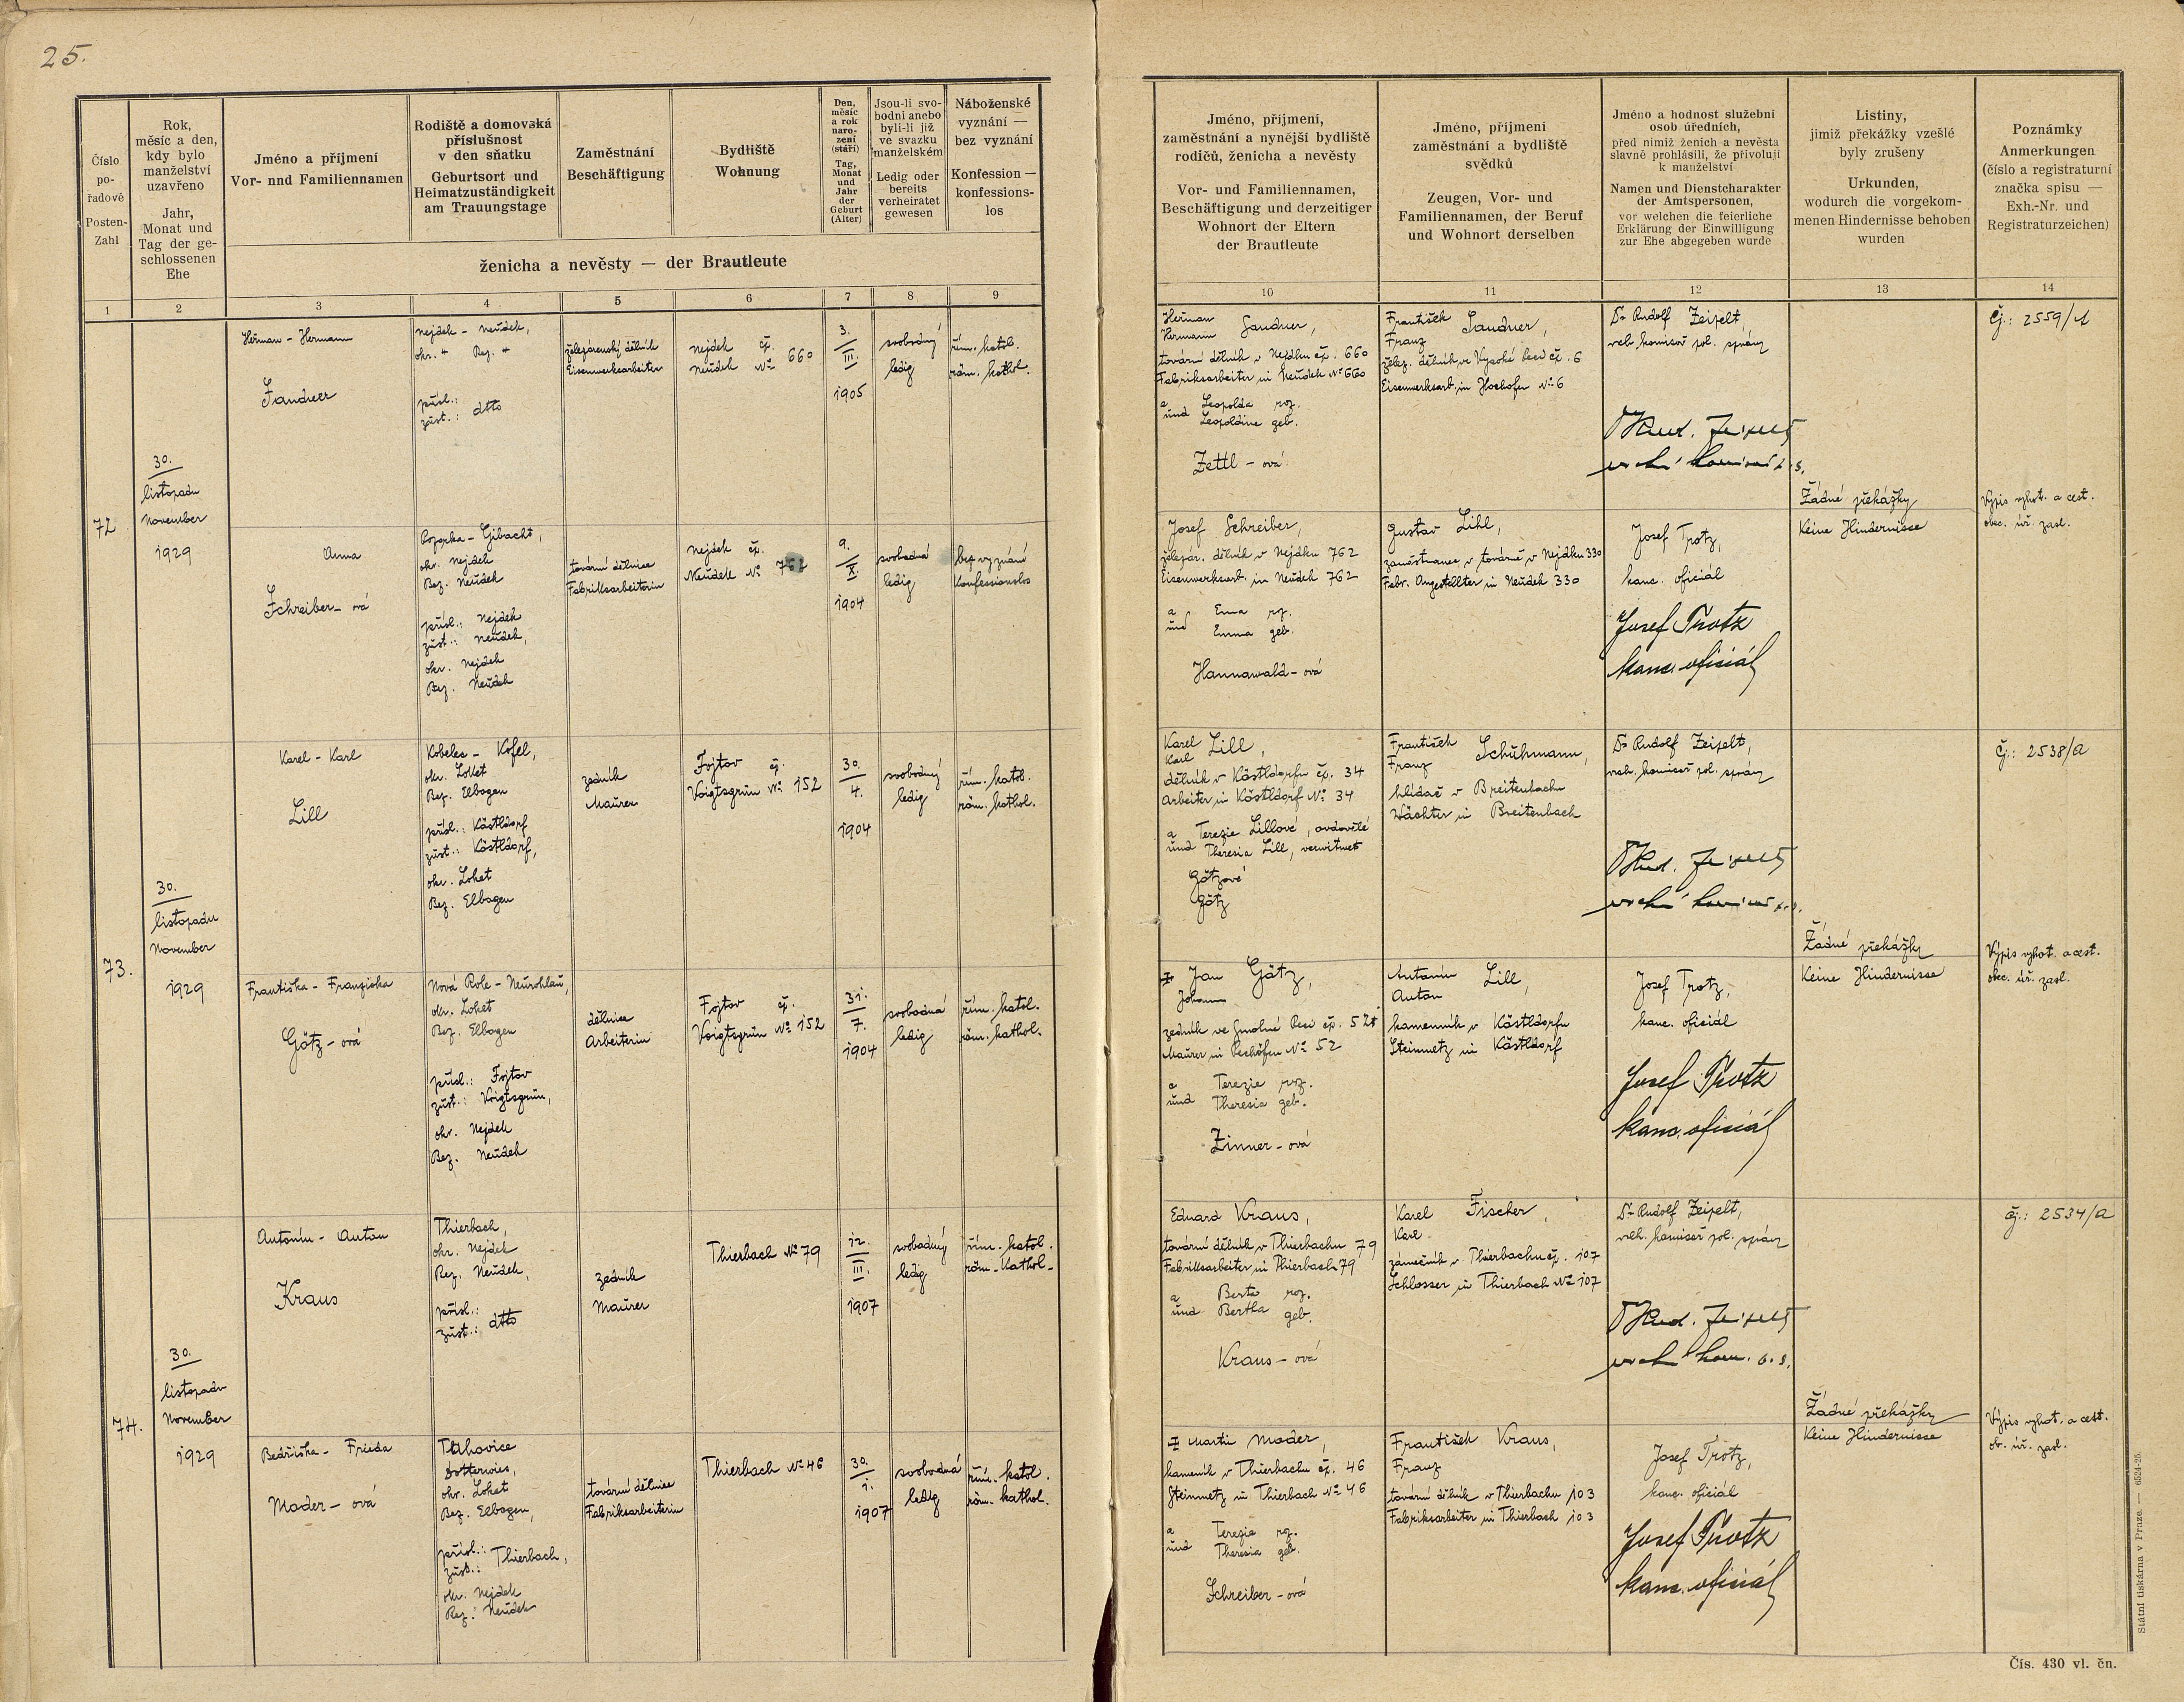 25.
Číslo
po-
řadové
Posten-
Zahl
Rok,
měsíc a den,
kdy bylo
manželství
uzavřeno
Jahr,
Monat und
Tag der ge-
schlossenen
Ehe
Jméno a příjmení
Vor- nnd Familiennamen
Rodiště a domovská
příslušnost
v den sňatku
Geburtsort und
Heimatzuständigkeit
am Trauungstage
Zaměstnání
Beschäftigung
Bydliště
Wohnung
Den,
měsíc
a rok
naro-
zení
(stáří)
Tag,
Monat
und
Jahr
der
Geburt
(Alter)
Jsou-li svo-
bodni anebo
byli-li již
ve svazku
manželském
Ledig oder
bereits
verheiratet
gewesen
Náboženské
vyznání —
bez vyznání
Konfession —
konfessions-
los
ženicha a nevěsty — der Brautleute
Jméno, příjmení,
zaměstnání a nynější bydliště
rodičů, ženicha a nevěsty
Vor- und Familiennamen,
Beschäftigung und derzeitiger
Wohnort der Eltern
der Brautleute
Jméno, příjmení
zaměstnání a bydliště
svědků
Zeugen, Vor- und
Familiennamen, der Beruf
und Wohnort derselben
Jméno a hodnost služební
osob úředních,
před nimiž ženich a nevěsta
slavně prohlásili, že přivolují
k manželství
Namen und Dienstcharakter
der Amtspersonen,
vor welchen die feierliche
Erklärung der Einwilligung
zur Ehe abgegeben wurde
Listiny,
jimiž překážky vzešlé
byly zrušeny
Urkunden,
wodurch die vorgekom-
menen Hindernisse behoben
wurden
Poznámky
Anmerkungen
(číslo a registraturní
značka spisu —
Exh.-Nr. und
Registraturzeichen)
1 2 3 4 5 6 7 8 9 10 11 12 13 14
72
30.
listopadu
November
1929
Heřman - Hermann
Sandner
Nejdek - Neudek,
okr. " Bez. "
přísl.:
zust.: dtto
železárenský dělník
Eisenwerksarbeiter
Nejdek čp.
Neudek No 660
3.
III.
1905
svobodný
ledig
řím. katol.
röm. kathol.
Heřman
Hermann Sandner,
tovární dělník v Nejdku čp. 660
Fabriksarbeiter in Neudek No 660
a Leopolda roz.
und Leopoldine geb.
Zettl - ová
František
Franz Sandner,
želez. dělník ve Vysoké Peci čp. 6
Eisenwerksarb. in Hochofen No 6
Dr Rudolf Zeipelt,
vrch. komisař pol. správy
Rud. Zeipelt
vrchní komisař p. s.
Žádné překážky
Keine Hindernisse
Čj.: 2559/A
Výpis vyhot. a cest.
obec. úř. zasl.
Anna
Schreiber - ová
Rozorka - Gibacht,
okr. Nejdek
Bez. Neudek
přísl.: Nejdek
zust.: Neudek,
okr. Nejdek
Bez. Neudek
tovární dělnice
Fabriksarbeiterin
Nejdek čp.
Neudek No 762
9.
X.
1904
svobodná
ledig
bez vyznání
Konfessionslos
Josef Schreiber,
železár. dělník v Nejdku 762
Eisenwerksarb. in Neudek 762
a Ema roz.
und Emma geb.
Hannawald - ová
Gustav Lihl,
zaměstnanec v továrně v Nejdku 330
Fabr. Angestellter in Neudek 330
Josef Trotz,
kanc. oficiál
Josef Trotz
kanc. oficiál
73.
30.
listopadu
November
1929
Karel - Karl
Lill
Kobelec - Kofel,
okr. Loket
Bez. Elbogen
přísl.: Kösteldorf
zust.: Kösteldorf,
okr. Loket
Bez. Elbogen
zedník
Maurer
Fojtov čp.
Voigtsgrün No 152
30.
4.
1904
svobodný
ledig
řím. katol.
röm. kathol.
Karel
Karl Lill,
dělník v Köstldorfu čp. 34
Arbeiter in Köstldorf No 34
a Terezie Lillové, ovdovělé
und Theresia Lill, verwitwet
Götzové
Götz
František
Franz Schuhmann,
hlídač v Breitenbachu
Wächter in Breitenbach
Dr Rudolf Zeipelt,
vrch. komisař pol. správy
Rud. Zeipelt
vrchní komisař p. s.
Žádné překážky
Keine Hindernisse
Čj.: 2538/A
Výpis vyhot. a cest.
obec. úř. zasl.
Františka - Franziska
Götz - ová
Nová Role - Neurohlau,
okr. Loket
Bez. Elbogen
přísl.: Fojtov
zust.: Voigtsgrün,
okr. Nejdek
Bez. Neudek
dělnice
Arbeiterin
Fojtov čp.
Voigtsgrün No 152
31.
7.
1904
svobodná
ledig
řím. katol.
röm. kathol.
‡ Jan Götz,
Johann
zedník ve Smolné Peci čp. 52
Maurer in Pechöfen No 52
a Terezie roz.
und Theresia geb.
Zinner - ová
Antonín Lill,
Anton
kameník v Köstldorfu
Steinmetz in Köstldorf
Josef Trotz,
kanc. oficiál
Josef Trotz
kanc. oficiál
74.
30.
listopadu
November
1929
Antonín - Anton
Kraus
Thierbach,
okr. Nejdek
Bez. Neudek,
přísl.:
zust.: dtto
zedník
Maurer
Thierbach No 79
12.
III.
1907
svobodný
ledig
řím. katol.
röm. kathol.
Eduard Kraus,
tovární dělník v Thierbachu 79
Fabriksarbeiter in Thierbach 79
a Berta roz.
und Bertha geb.
Kraus - ová
Karel Fischer,
Karl
zámečník v Thierbachu čp. 107
Schlosser in Thierbach No 107
Dr Rudolf Zeipelt,
vrch. komisař pol. správy
Rud. Zeipelt
vrchní kom. p. s.
Žádné překážky
Keine Hindernisse
čj.: 2534/A
Výpis vyhot. a cest.
ob. úř. zasl.
Bedřiška - Frieda
Mader - ová
Tatrovice
Dotterwies,
okr. Loket
Bez. Elbogen,
přísl.:
zust.: Thierbach,
okr. Nejdek
Bez. Neudek
tovární dělnice
Fabriksarbeiterin
Thierbach No 46
30.
1.
1907
svobodná
ledig
řím. katol.
röm. kathol.
‡ Martin Mader,
kameník v Thierbachu čp. 46
Steinmetz in Thierbach No 46
a Terezie roz.
und Theresia geb.
Schreiber - ová
František Kraus,
Franz
tovární dělník v Thierbachu 103
Fabriksarbeiter in Thierbach 103
Josef Trotz,
kanc. oficiál
Josef Trotz
kanc. oficiál
Státní tiskárna v Praze — 6524-25.
Čís. 430 vl. čn.